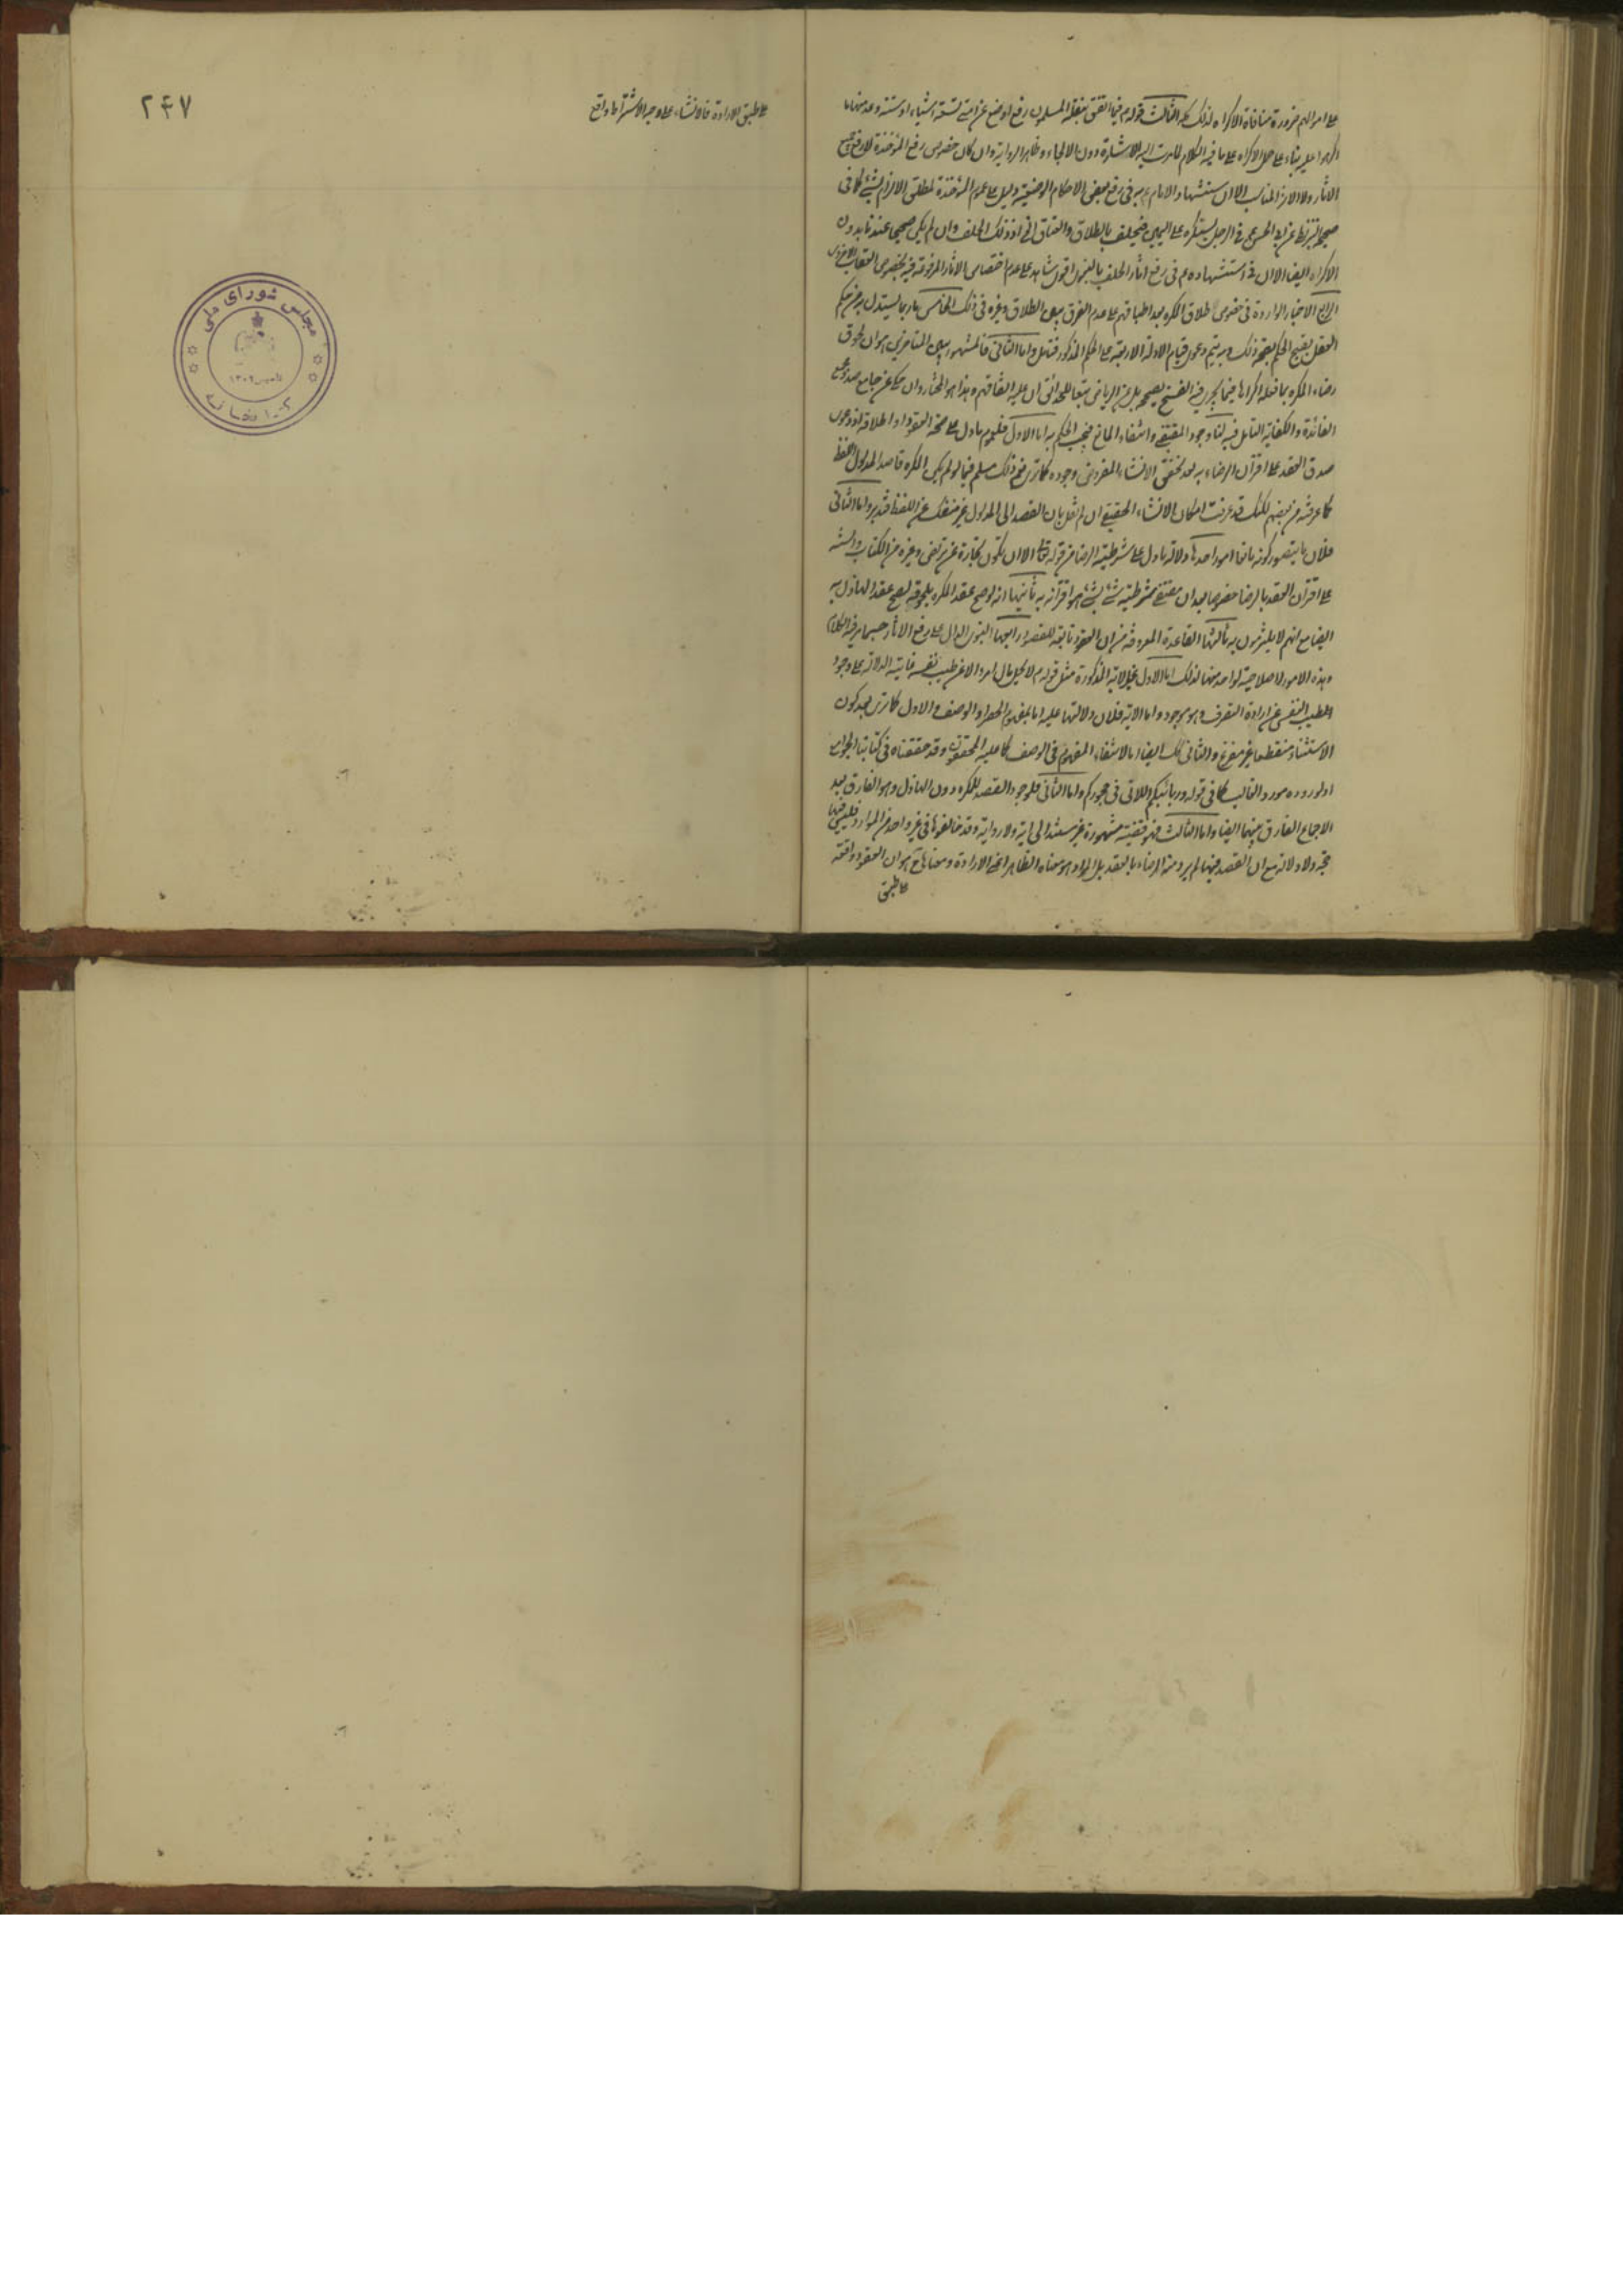 على امرالهم ضرورة منافاة الاكراه لذلك كله الثالث قوله م فيما اتفق بنقله المسلمون رفع او وضع عن امتى تسعة اشياء او ستة وعد منها ما
اكرهوا عليه بناء على حمل الاكراه على ما فيه الكلام لما مرت اليه الاشارة دون الالجاء وظاهر الرواية وان كان خصوص رفع المؤاخذة لا رفع جميع
الاثار ولا الاثر المناسب الا ان استشهاد الامام ع به فى رفع بعض الاحكام الوضعية دليل على عموم المؤاخذة لمطلق الالزام بشيئ كما فى
صحيح البزنطى عن ابى الحسن ع فى الرجل يستكره على اليمين فيحلف بالطلاق والعتاق الى اخر ذلك الحلف وان لم يكن صحيحا عندنا بدون
الاكراه ايضا الا ان فى استشهاده ع فى رفع اثار الحلف بالنبوى اقوى شاهد على عدم اختصاص الاثار المرفوعة فيه بخصوص العقاب الاخروى
الرابع الاخبار الواردة فى خصوص طلاق المكره بعد اطباقهم على عدم الفرق بين الطلاق وغيره فى ذلك الخامس ما ربما يستدل به من حكم
العقل بقبح الحكم بصحة ذلك وبه يتم دعوى قيام الادلة الاربعة على الحكم المذكور فتامل واما الثانى فالمشهور بين المتاخرين هو ان لحوق
رضاء المكره بما فعله اكراها فيما يجرى فيه الفسخ يصححه بل عن الرياض تبعا للحدائق ان عليه اتفاقهم وهذا هو المختار وان حكى عن جامع صد وجمع
الفائدة والكفاية التامل فيه لنا وجود المقتضى وانتفاء المانع فيجب الحكم به اما الاول فلعموم ما دل على صحة العقود او اطلاقه اذ دعوى
صدق العقد على اقتران الرضاء به بعد تحقق الانشاء المفروض وجوده كما ترى نعم ذلك مسلم فيما لو لم يكن المكره قاصدا لمدلول اللفظ
كما عرفته من بعضهم لكنك قد عرفت امكان الانشاء الحقيقى ان لم نقل بان القصد الى المدلول غير منفك عن اللفظ فتدبر واما الثانى
فلان ما يتصور كونه مانعا امور احدها دلالة ما دل على شرطية الرضا من قوله تعالى الا ان تكون تجارة عن تراض وغيره من الكتاب والسنه
على اقتران العقد بالرضا ضرورة ان مقتضى شرطية شئ لشئ هو اقترانه به ثانيها انه لو صح عقد المكره بلحوقه لصح عقد الهازل به
ايضا مع انهم لا يلتزمون به ثالثها القاعدة المعروفة من ان العقود تابعة للقصود رابعها النبوى الدال على رفع الاثار حسبما مر فيه الكلام
وهذه الامور لا صلاحية لواحد منها لذلك اما الاول فلان الاية المذكورة مثل قوله م لا يحل مال امرء الا عن طيب نفسه غايته الدلالة على وجود
الطيب النفس عن ارادة التصرف وهو موجود واما الاية فلان دلالتها عليه اما بمفهوم الحصر او الوصف والاول كما ترى بعد كون
الاستثناء منقطعا غير مفرغ والثانى كك ايضا اما لانتفاء المفهوم فى الوصف كما عليه المحققون وقد حققناه فى كتابنا الجوامع
او لوروده مورد الغالب كما فى قوله وربائبكم اللاتى فى حجوركم واما الثانى فلوجود القصد للمكره دون الهازل وهو الفارق بعد
الاجماع الفارق بينهما ايضا واما الثالث فهو قضية مشهورة غير مستند الى اية ولا رواية وقد خالفوها فى غير واحد من الموارد فليس فيها
حجة ولا دلالة مع ان القصد فيها لم يرد منه الرضاء بالعقد بل المراد هو معناه الظاهر اعنى الارادة ومعناها ح هو ان العقود واقعة
على طبق
٢٤٧
على طبق الارادة فالانشاء على وجه الاشتراط واقع
مجلس شورای ملی
تاسیس ١٣٠٢
کتابخانه